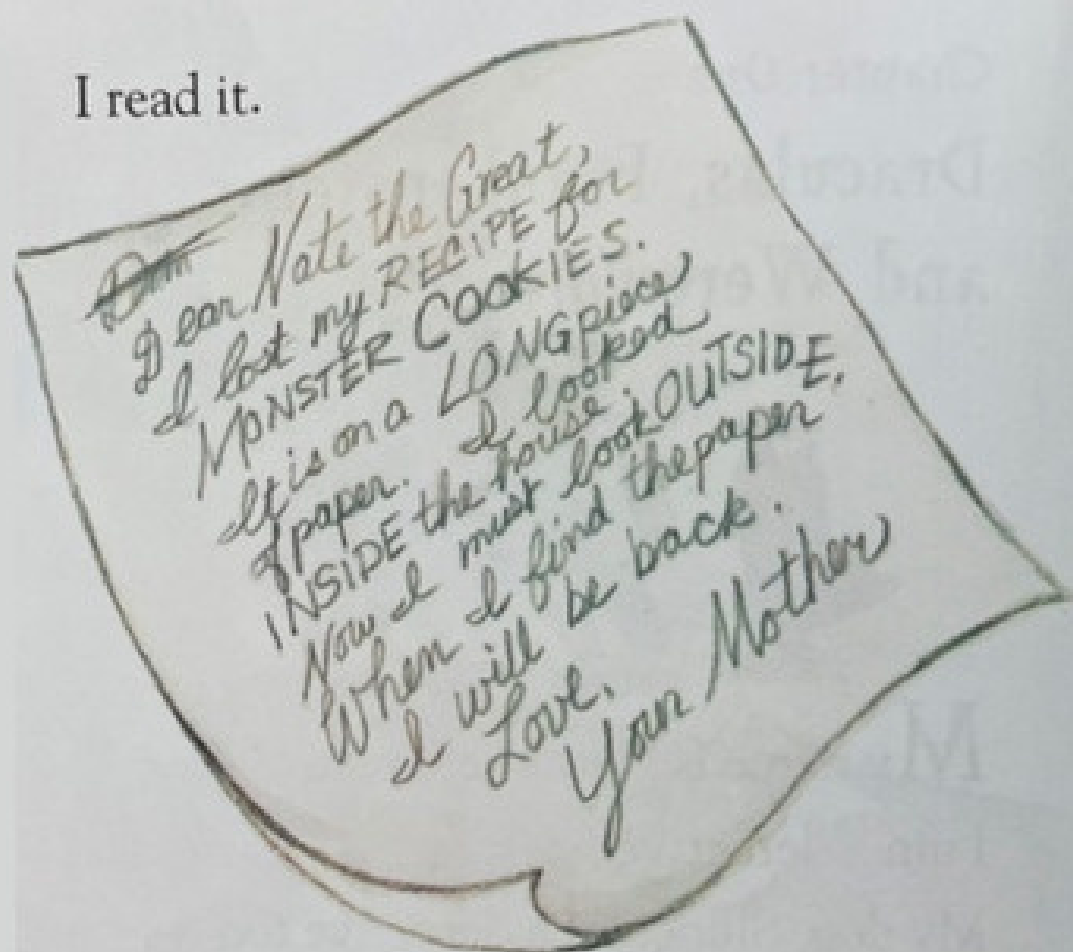 I read it.
Dear Nate the Great,
I lost my RECIPE for
MONSTER COOKIES.
It is on a LONG piece
of paper. I looked
INSIDE the house.
Now I must look OUTSIDE.
When I find the paper
I will be back.
Love,
Your Mother